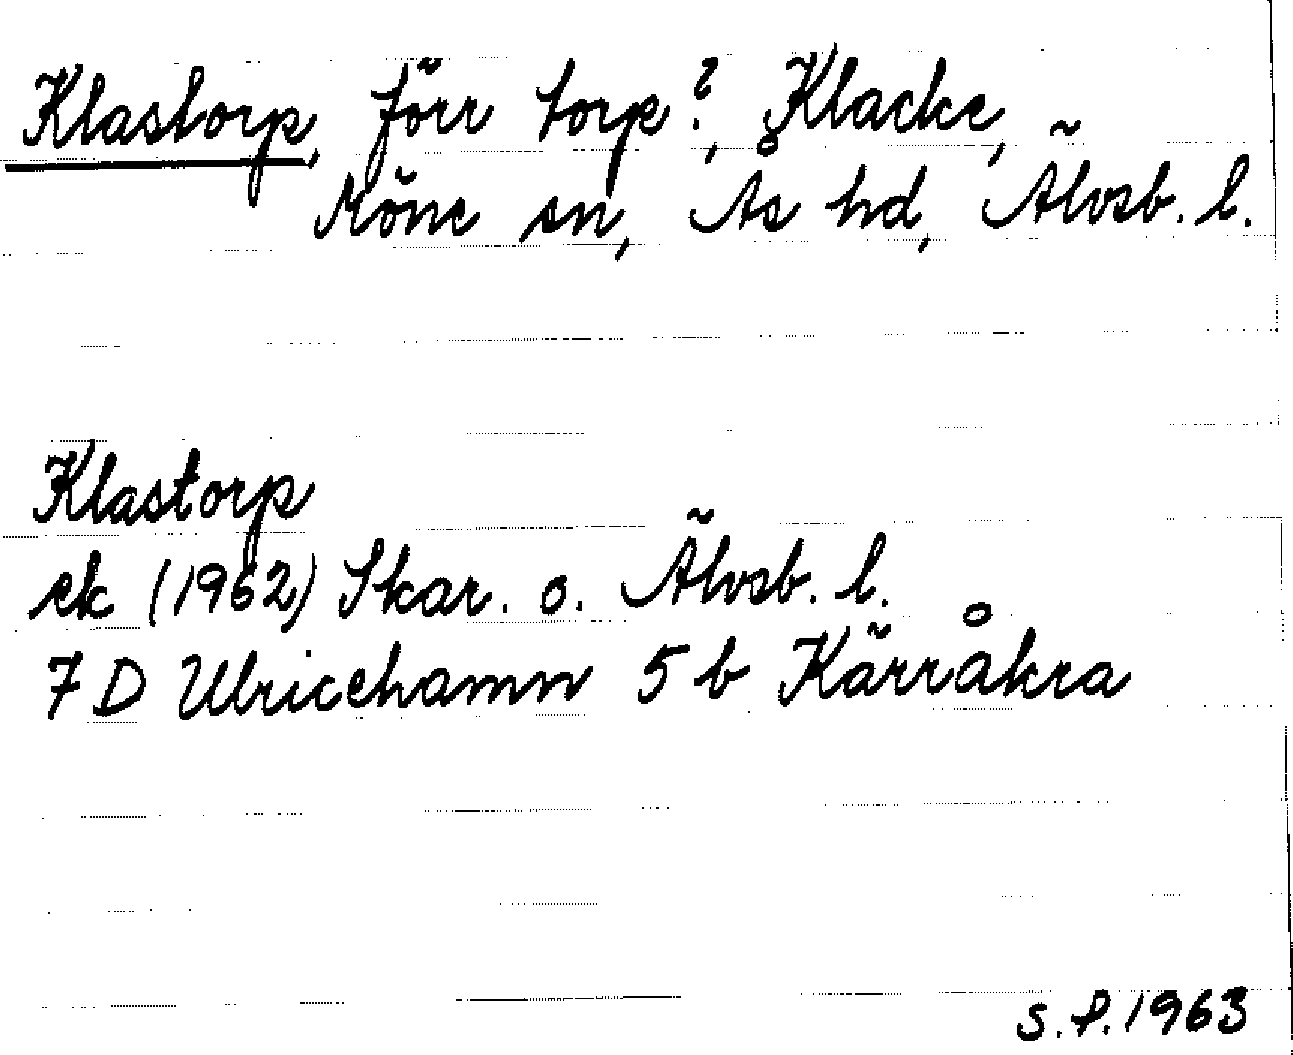 Klastorp, förr torp?, Klacke,
Möne sn, Ås hd, Älvsb. l.
Klastorp
ek (1962) Skar. o. Älvsb. l.
7 D Ulricehamn 5 b Kärråkra
S.P. 1963